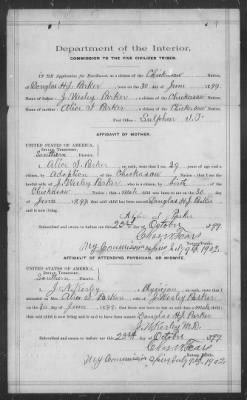 Department of the Interior,
COMMISSION TO THE FIVE CIVILIZED TRIBES.
IN RE Application for Enrollment, as a citizen of the Chickasaw Nation,
of Douglas H J Parker, born on the 30 day of June, 1899
Name of Father: J. Wesley Parker a citizen of the Chickasaw Nation.
Name of Mother: Alice S. Parker a citizen of the Chickasaw Nation.
Post Office: Sulphur I.T.
AFFIDAVIT OF MOTHER.
UNITED STATES OF AMERICA,
INDIAN TERRITORY,
Southern District.
I, Alice S. Parker, on oath, state that I am 29 years of age and a
citizen, by Adoption of the Chickasaw Nation; that I am the
lawful wife of J. Wesley Parker who is a citizen, by birth of the
Chickasaw Nation; that a child was born to me on 30 day
of June, 1899; that said child has been named Douglas H J Parker
and is now living.
Alice S. Parker
23rd October 1899
My Commission Expires July 9th 1902
AFFIDAVIT OF ATTENDING PHYSICIAN, OR MIDWIFE.
UNITED STATES OF AMERICA,
INDIAN TERRITORY,
Southern District.
a Physician, on oath, state that I
attended Mrs. Alice S. Parker, wife of J. Wesley Parker
on the 30 day of June, 1899; that there was born to her on said date a male
child; that said child is now living and is said to have been named Douglas H J Parker
M.D.
23rd October 1899
My Commission Expires July 9th 1902